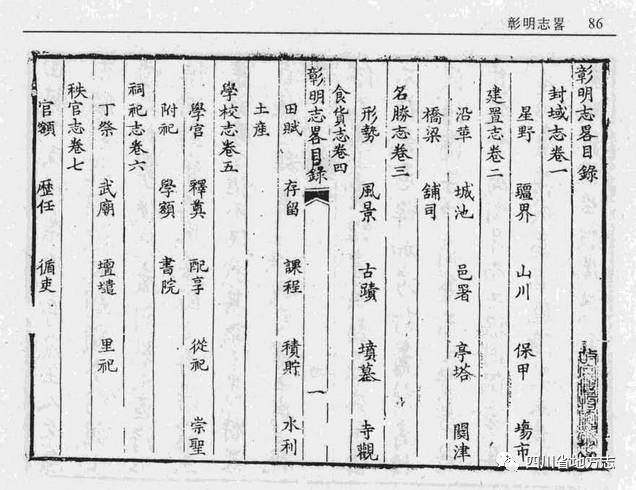 彰明志畧 86
彰明志畧目錄
封域志卷一
星野 疆界 山川 保甲 場市
建置志卷二
沿革 城池 邑署 亭塔 關津
橋梁 舖司
名勝志卷三
形勢 風景 古蹟 墳墓 寺觀
食貨志卷四
彰明志畧目錄 一
田賦 存留 課程 積貯 水利
土產
學校志卷五
學官 釋奠 配享 從祀 崇聖
附祀 學額 書院
祠祀志卷六
丁祭 武廟 壇壝 里祀
秩官志卷七
官額 歷任 循吏
四川省地方志